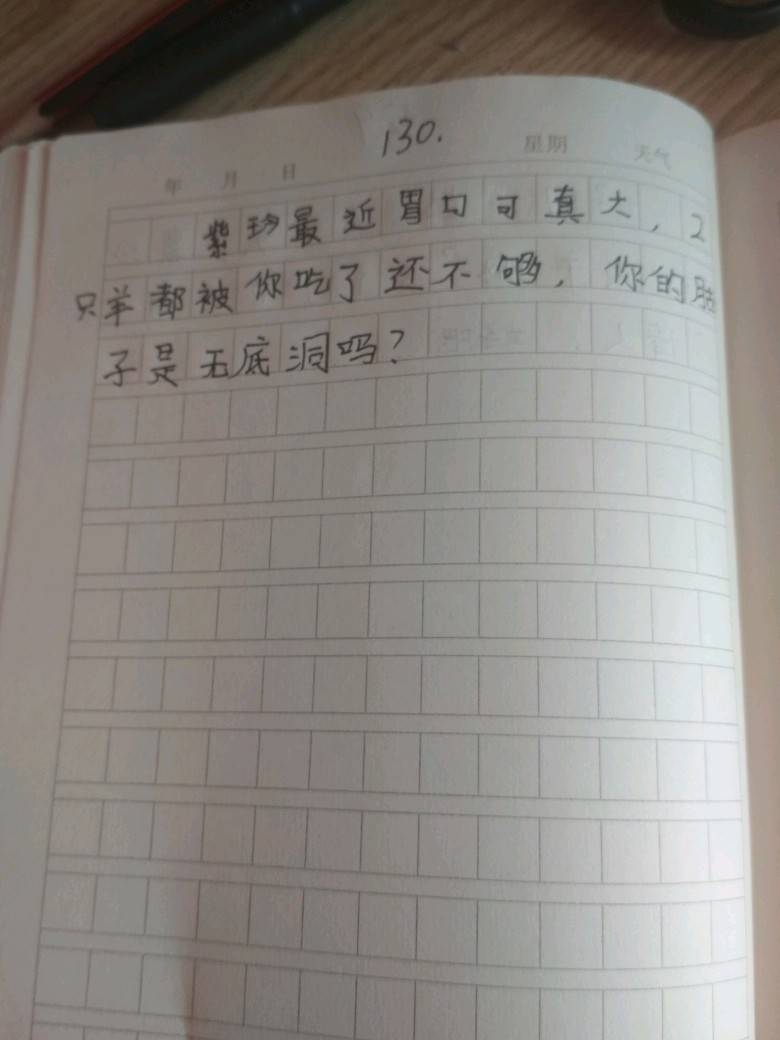 130.
年 月 日 星期 天气
紫玢最近胃口可真大，2
只羊都被你吃了还不够，你的肚
子是无底洞吗？